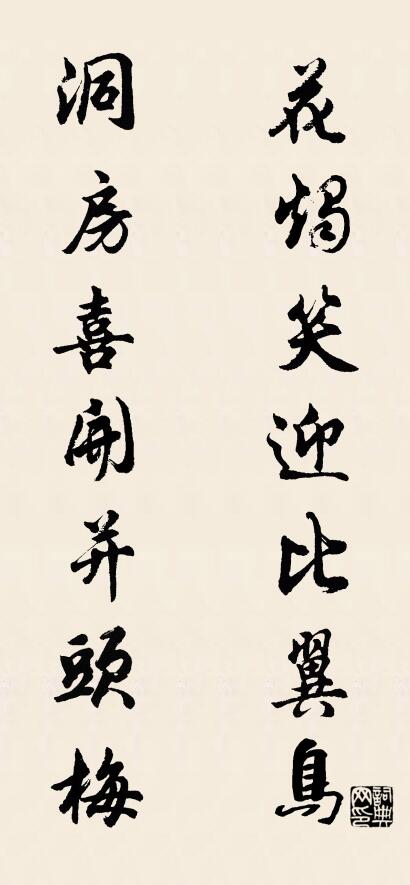 花燭笑迎比翼鳥
洞房喜開并頭梅
詞典網印